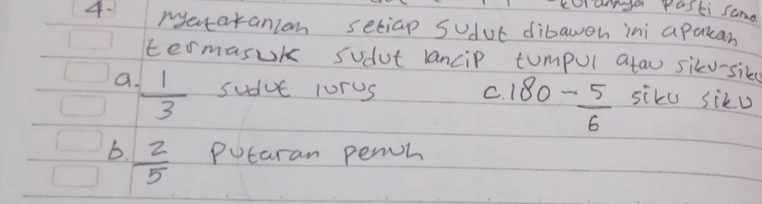 pasti sama
4. nyatakanlah setiap sudut dibawah ini apakah
termasuk sudut lancip tumpul atau siku-siku
a. 1/3 sudut lurus c. 180 - 5/6 siku siku
b. 2/5 putaran penuh